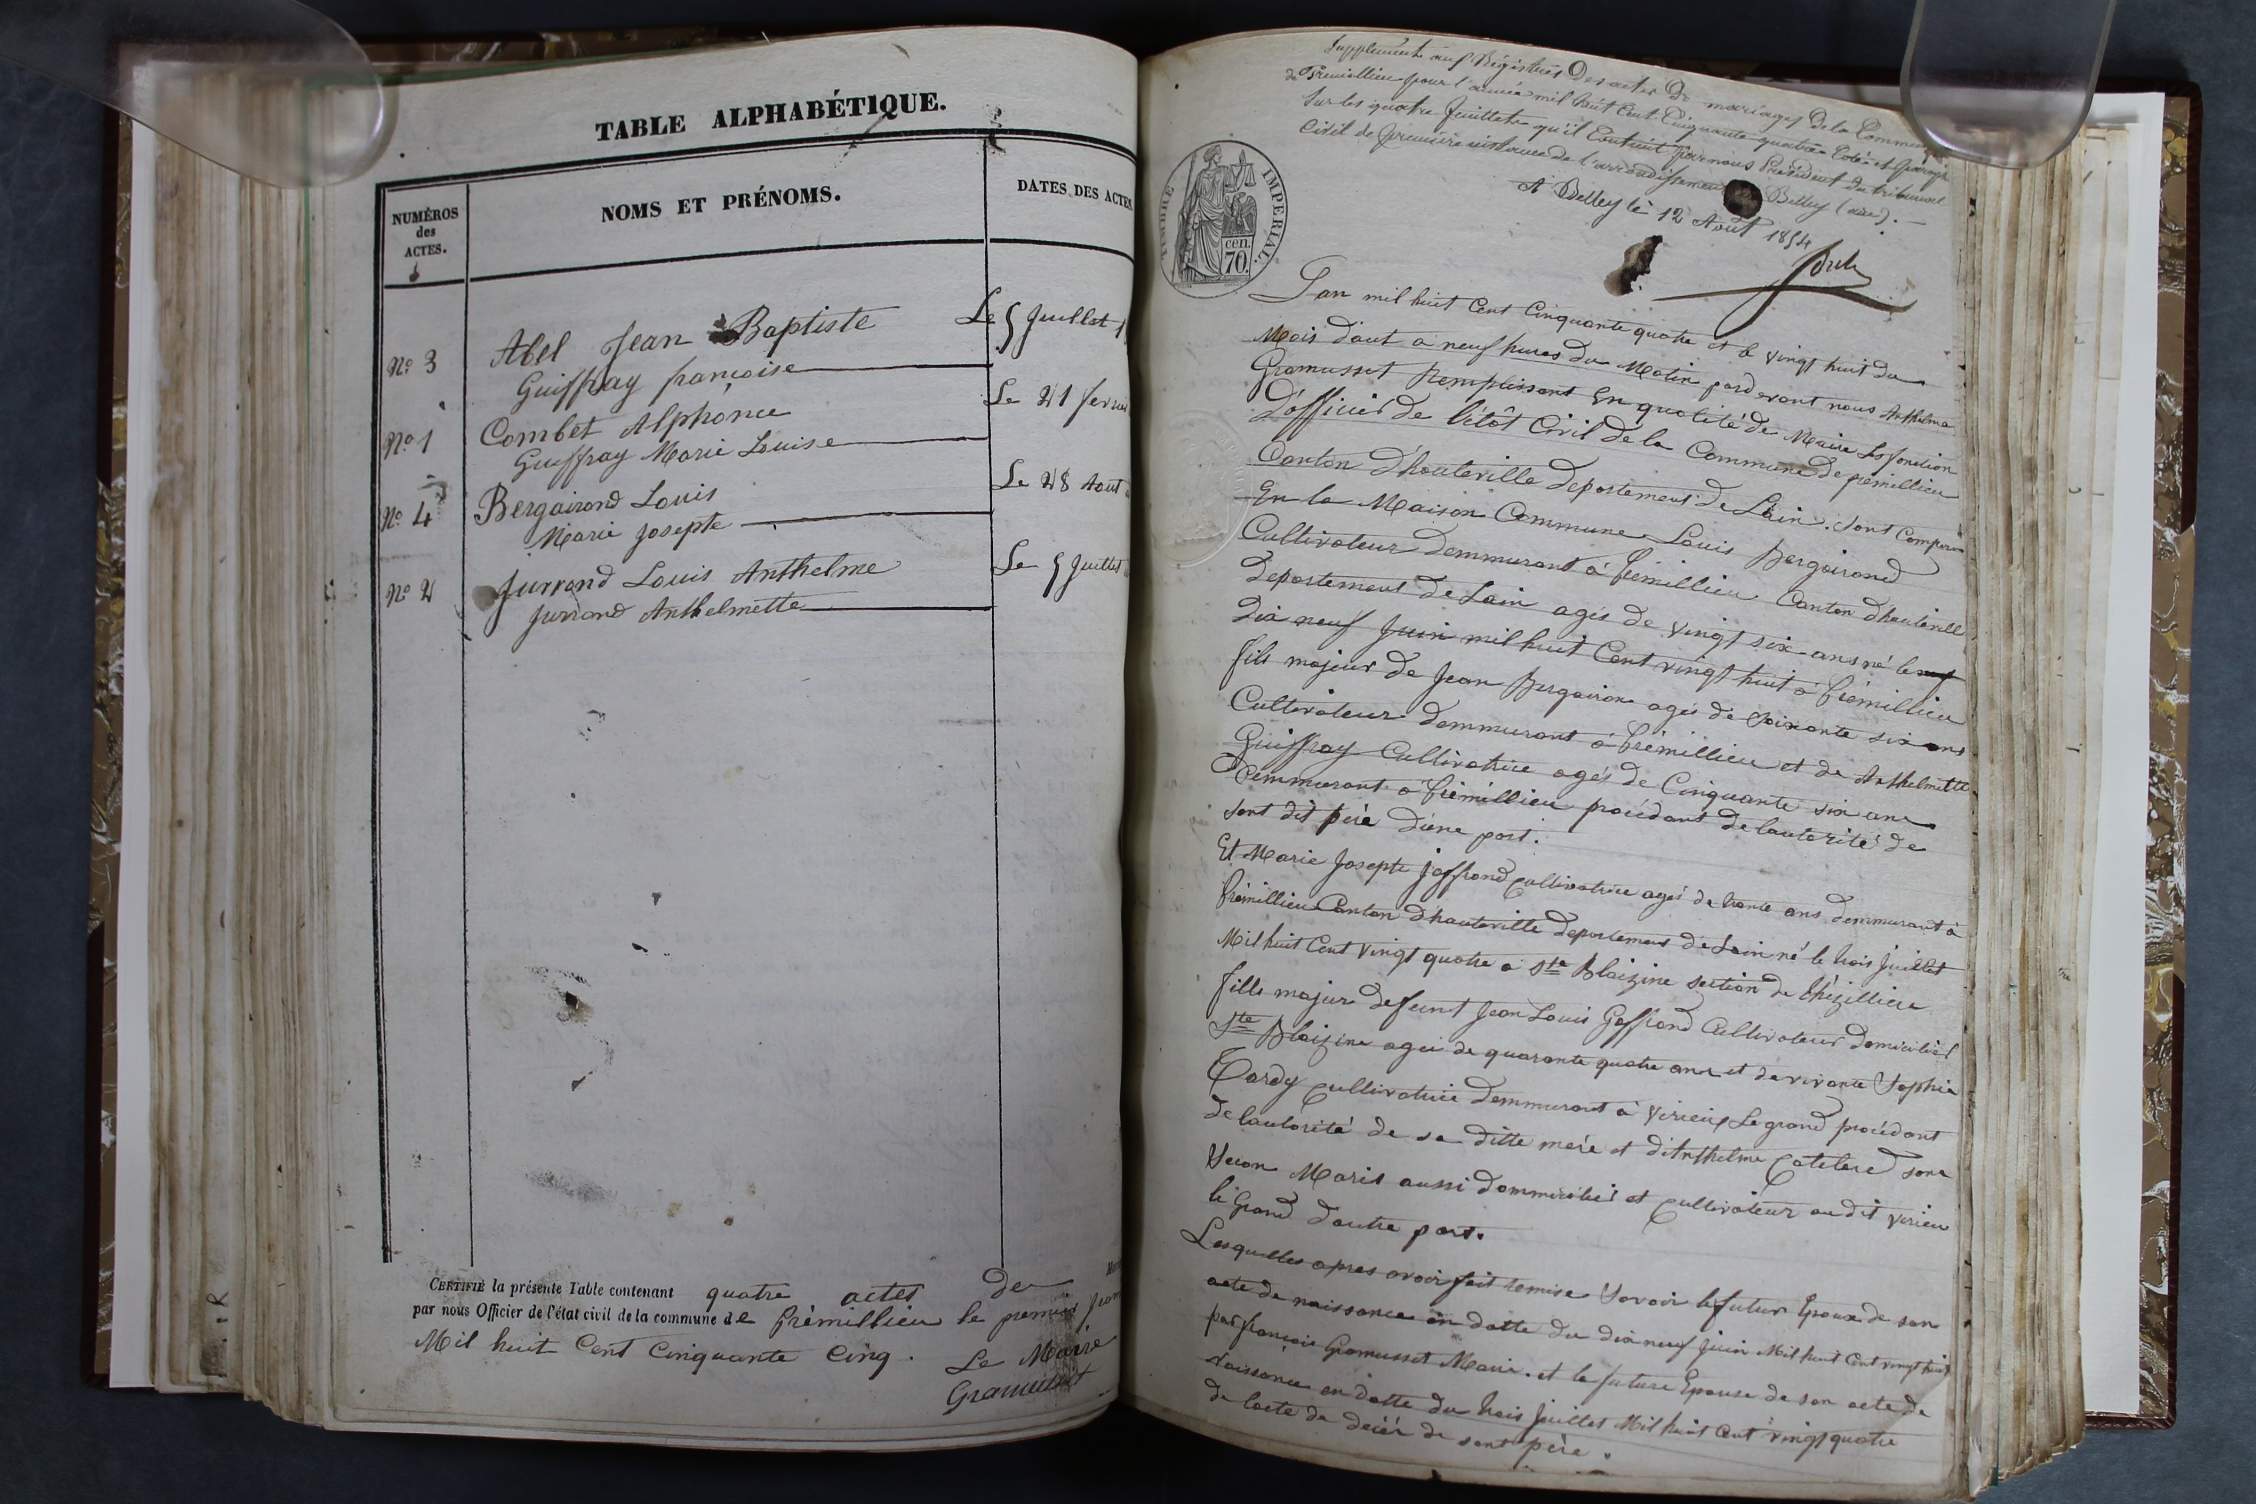 TABLE ALPHABÉTIQUE.
NUMÉROS des ACTES.
NOMS ET PRÉNOMS.
DATES DES ACTES
No 3 Abel Jean Baptiste Le 5 Juillet
Guiffray françoise
No 1 Combet Alphonce Le 21 fevrie
Guiffray Marie Louise
No 4 Bergairond Louis Le 28 Aout
Marie Josepte
No 2 Jurrond Louis Anthelme Le 5 Juillet
Jurrond Anthelmette
CERTIFIÉ la présente Table contenant quatre actes de
par nous Officier de l'état civil de la commune de Prémillieu le premier Jan
Mil huit Cent Cinquante Cinq.
Le Maire
Gramusset
Supplément aux Régistres Des actes De mariages de la Commune
de Premillieu pour l'année mil huit Cent Cinquante quatre Coté et Paraphé
Sur les quatre feuillets qu'il Contient par nous Président du tribunal
Civil de première instance de l'arrondissement Belley (ain). —
A Belley le 12 Août 1854
TIMBRE IMPÉRIAL.
70 cen.
L'an mil huit Cent Cinquante quatre et le vingt huit du
Mois d'aut a neuf hures du Matin pardevant nous Anthelme
Gramusset Remplissant En qualité de Maire Les fonction
D'officier de L'état Civil de la Commune de premillieu
Canton D'hauteville Departement De Lain. sont Comparu
En la Maison Commune Louis Bergairond
Cultivateur Demmurant á Prémillieu Canton D'hautevill
Departement De Lain agés de vingt six ans né le
Dix neuf Juin mil huit Cent vingt huit à Prémillieu
fils majeur de Jean Bergairon agés de Soixante six ans
Cultivateur Demmurant á Prémillieu et de Anthelmette
Guiffray Cultivatrice agés de Cinquante six ans
Demmurant á Prémillieu procédant De lautorité de
sont dit père D'une part.
Et Marie Josepte Joffrond Cultivatrice agés de trente ans Demmurant à
Prémillieu Canton D'hauteville Departement de Lain né le trois Juillet
Mil huit Cent vingt quatre a Ste Blaizine Section de Thézillieu
fille majeur defeunt Jean Louis Goffrond Cultivateur Domicilié
Ste Blaizine agés de quarante quatre ans et de vivante Sophie
Tardy Cultivatrice Demmurant à Virieu Le grand procédant
De lautorité de sa ditte mère et d'Anthelme Catelere sont
Secon Maris aussi Dommicilié et Cultivateur au dit Virieu
le Grand D'autre part.
Lesquelles apres avoir fait remise Savoir le futur Epoux de son
acte de naissance en datte du dix neuf Juin Mil huit Cent vingt huit
par françois Gramusset Maire. et la future Epouse de son acte de
Naissance en datte du trois Juillet Mil huit Cent vingt quatre
De lacte de décér de sont père.